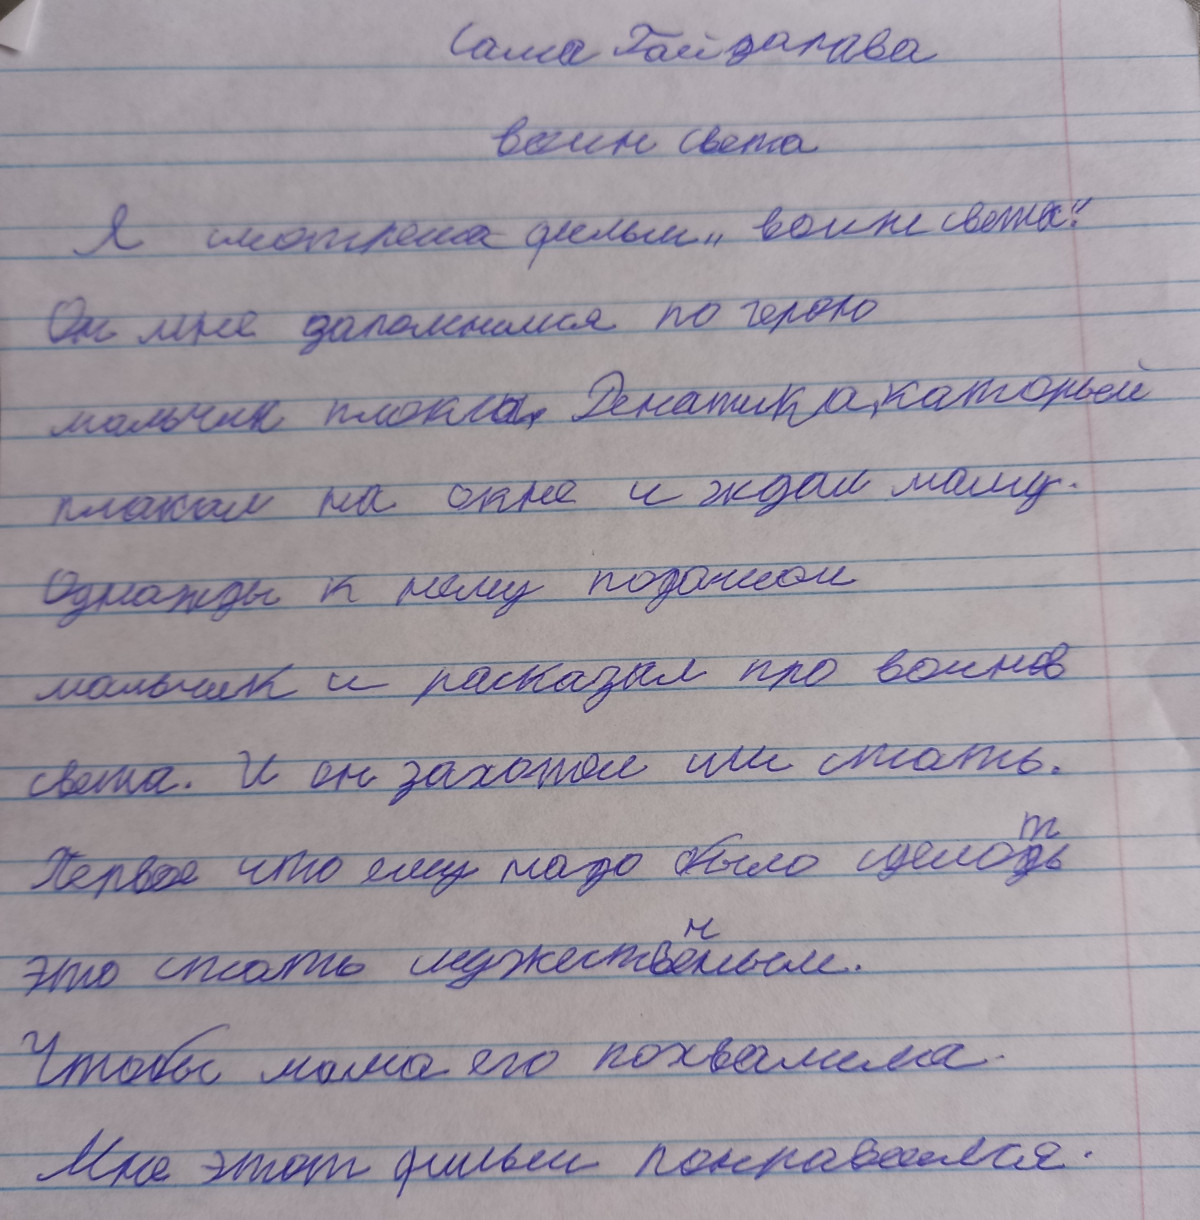 Сама Гайдарава
воин света
Я смотрела фильм „воин света".
Он мне запомнился по герою
мальчик плакса, Ренатика, каторый
плакал на окне и ждал маму.
Однажды к нему подошол
мальчик и расказал про воинов
света. И он захотол им стать.
Первое что ему надо было сделать
это стать мужественным.
Чтобы мама его похвалила.
Мне этот фильм понравился.